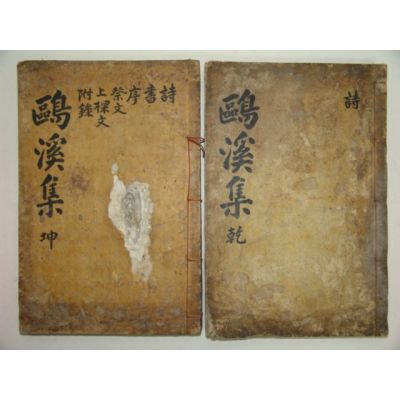 詩
鷗溪集 乾
詩
書
序
祭文
上樑文
附錄
鷗溪集 坤